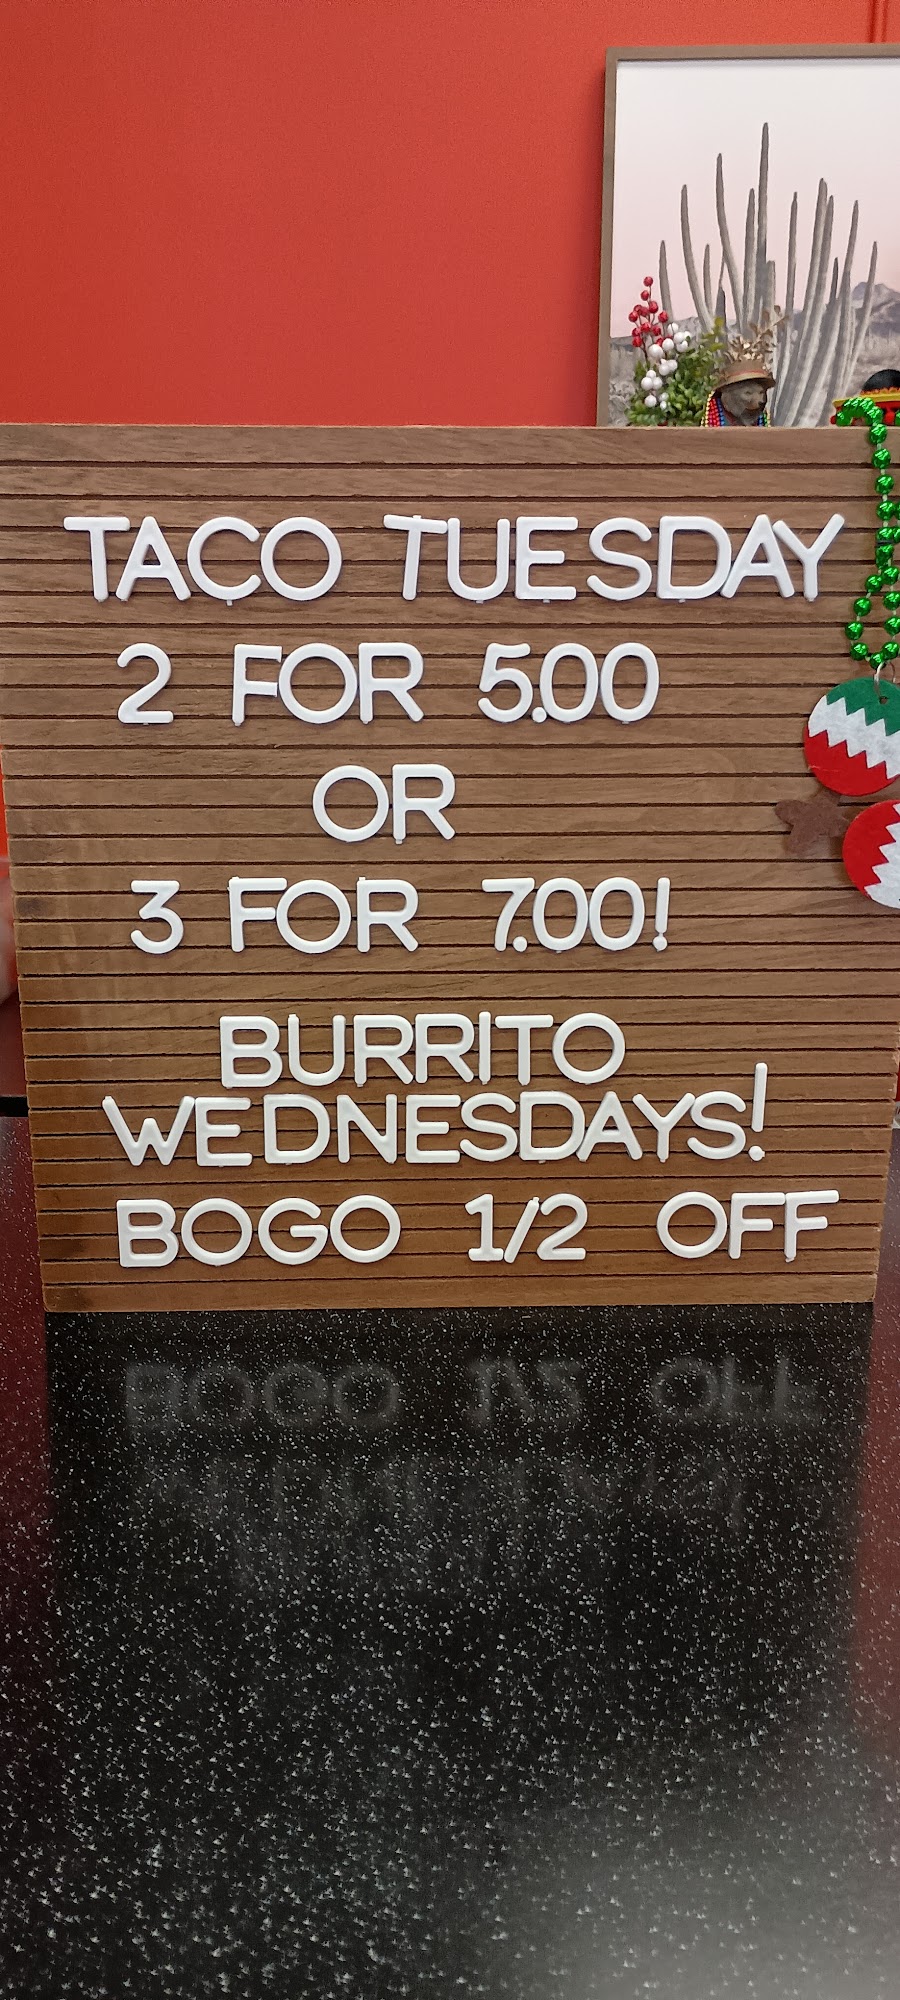 TACO TUESDAY
2 FOR 5.00
OR
3 FOR 7.00!
BURRITO
WEDNESDAYS!
BOGO 1/2 OFF